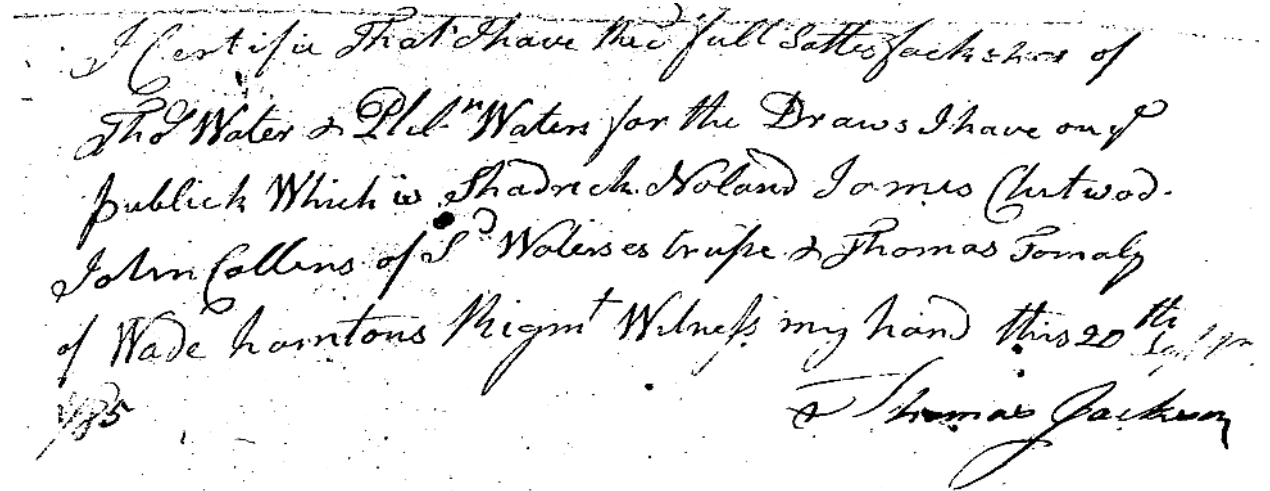 I Certifie That I have Recd full Sattesfackshon of
Thos Water & Phln Waters for the Draws I have on ye
publick Which is Shadrick Noland James Chitwod
John Collins of Sd Waterses trupe & Thomas Tomaly
of Wade hamtons Rigmt Witness my hand this 20th
1785 Thomas Jackson